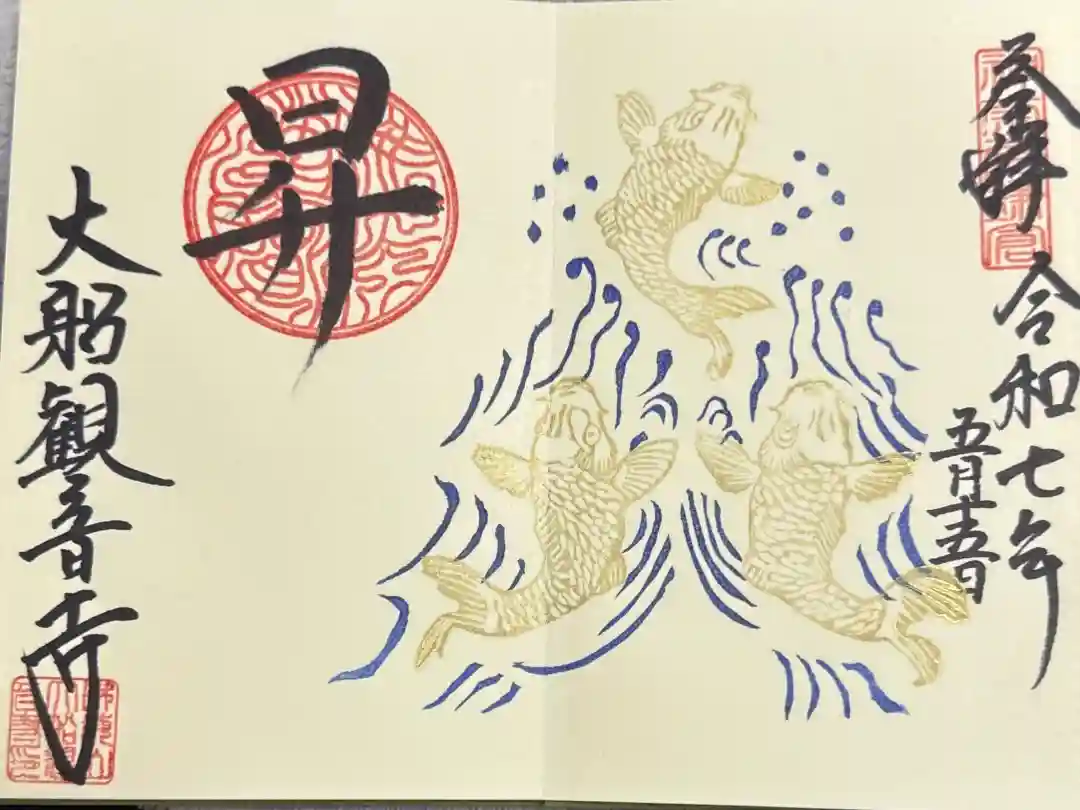 奉拝
令和七年
五月十五日
昇
大船観音寺